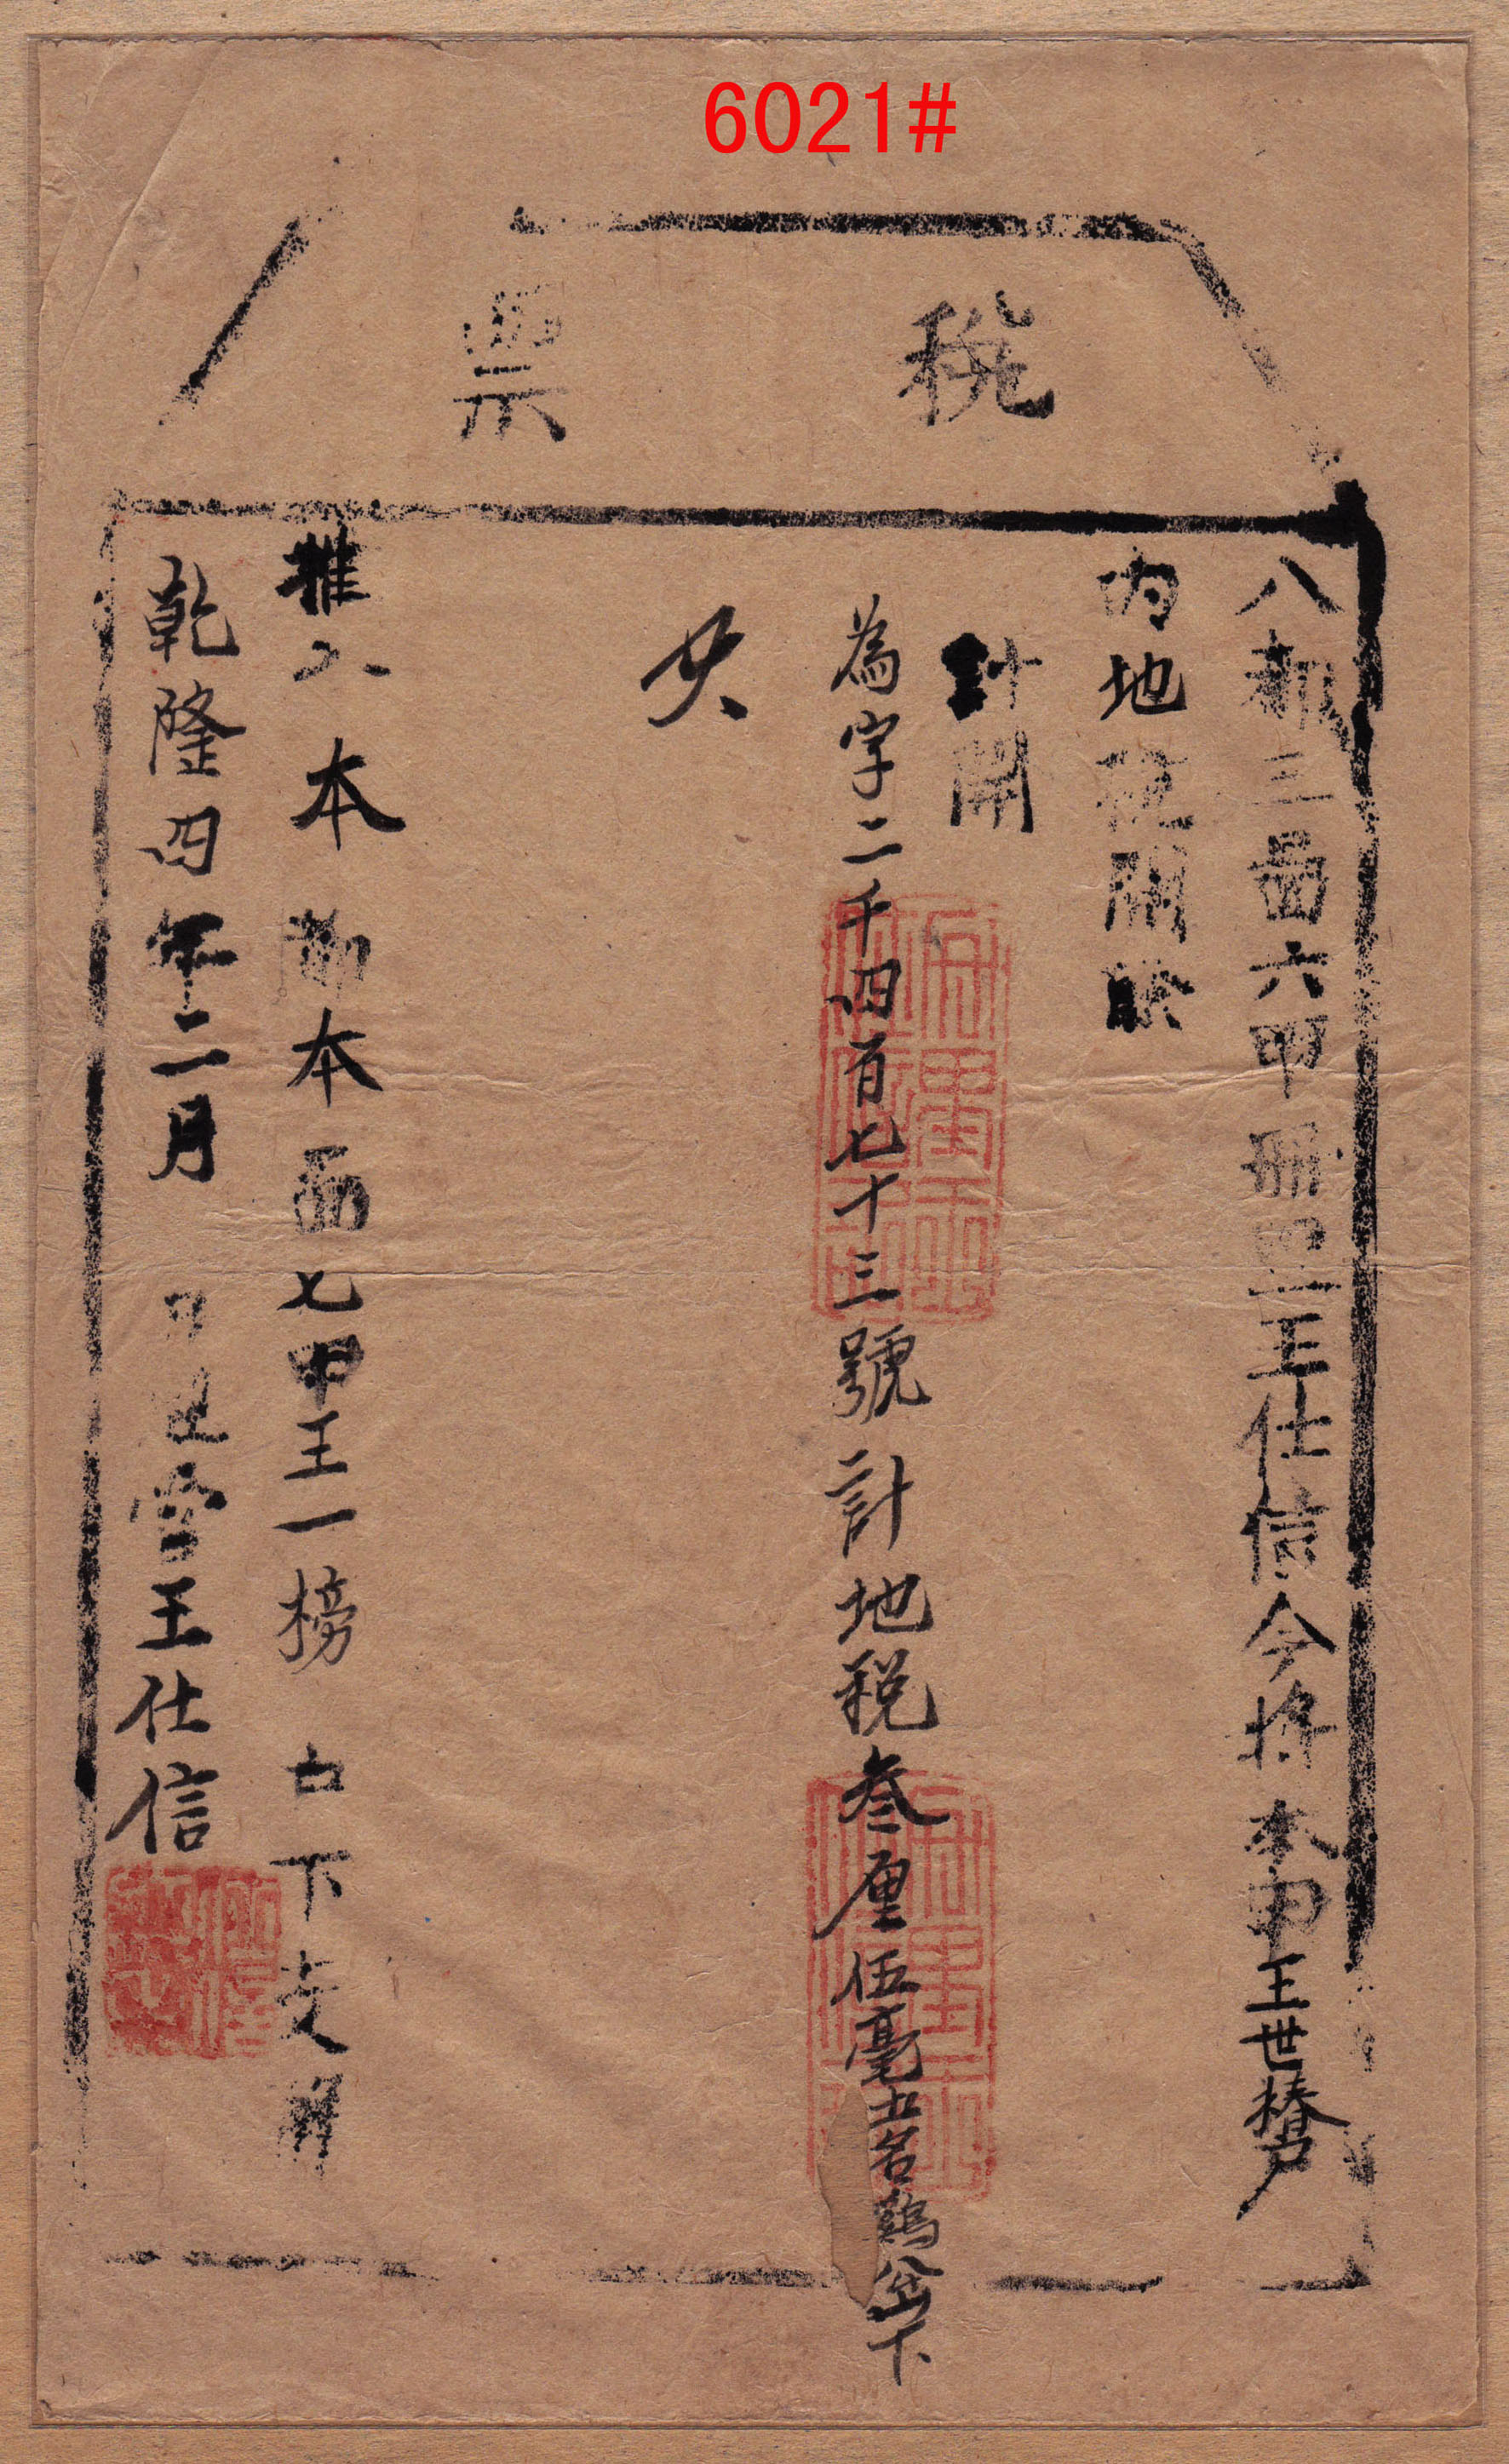 6021#
稅票
八都三啚六甲冊里王仕信今将本甲王世椿戶
內地稅開於
計開
為字二千四百七十三號計地税叁厘伍毫土名鷄坌下
推入本都本啚七甲王一榜户下支解
乾隆四年二月 日里書王仕信